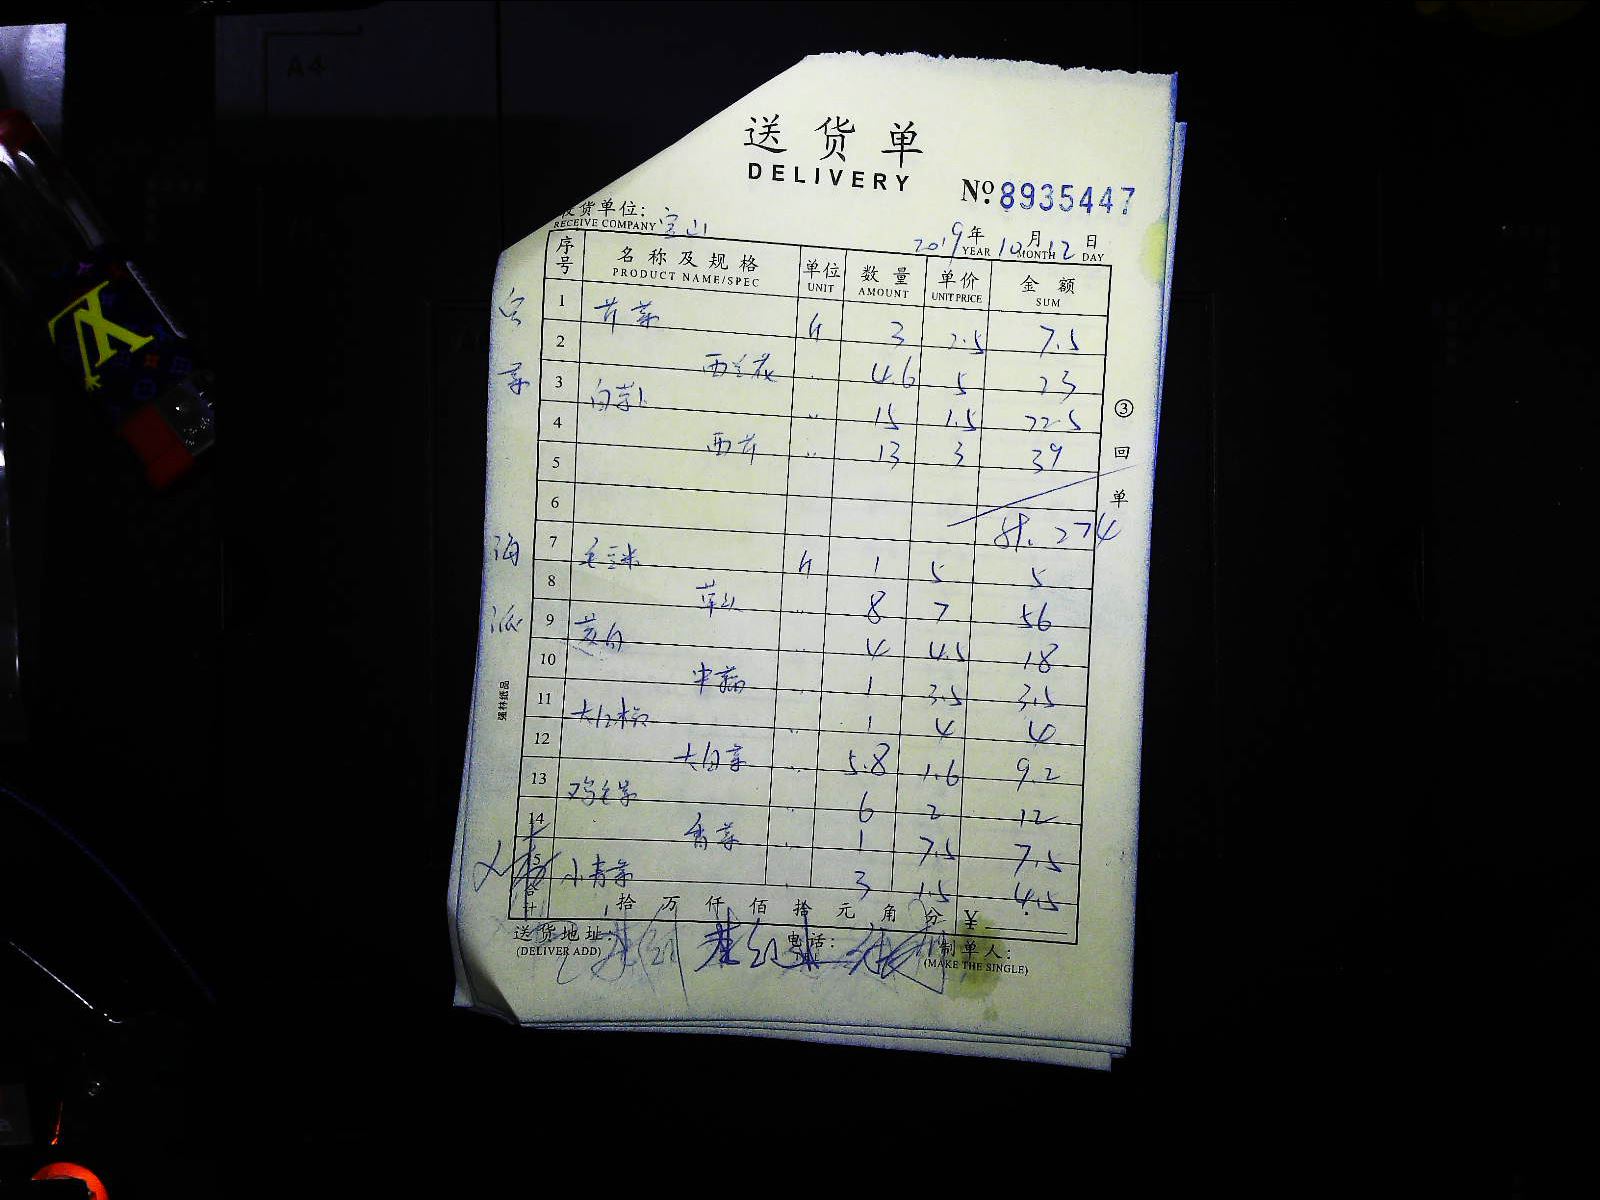 送货单
DELIVERY
№ 8935447
收货单位: 宝山
RECEIVE COMPANY
2019年 10月 12日
YEAR MONTH DAY
序号 名称及规格 单位 数量 单价 金额
PRODUCT NAME/SPEC UNIT AMOUNT UNIT PRICE SUM
1 芹菜 斤 3 2.5 7.5
2 西兰花 〃 4.6 5 23
3 白萝卜 〃 15 1.5 22.5
4 西芹 〃 13 3 39
5
6 274
7 毛豆米 斤 1 5 5
8 草头 〃 8 7 56
9 茭白 〃 4 4.5 18
10 〃 1 3.5 3.5
11 大红椒 〃 1 4 4
12 大白菜 〃 5.8 1.6 9.2
13 鸡毛菜 〃 6 2 12
14 香菜 〃 1 7.5 7.5
15 小青菜 〃 3 1.5 4.5
合计 拾 万 仟 佰 拾 元 角 分 ¥
送货地址: 电话: 制单人:
(DELIVER ADD) (MAKE THE SINGLE)
③回单
海派
强林纸品
A4